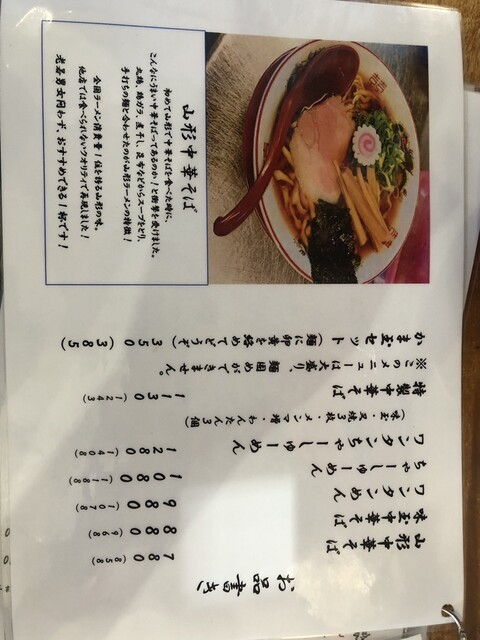 お品書き
山形中華そば 780(858)
味玉中華そば 880(968)
ワンタンめん 980(1078)
ちゃーしゅーめん 1080(1188)
ワンタンちゃーしゅーめん 1280(1408)
(味玉・叉焼3枚・メンマ増・わんたん3個)
特製中華そば 1130(1243)
※このメニューは大盛り、麺固めができません。
かま玉セット(麺に卵黄を絡めてどうぞ) 350(385)
山形中華そば
初めて山形で中華そばを食べた時に、
こんなにうまい中華そばってあるのか！と衝撃を受けました。
丸鶏、鶏ガラ、煮干し、昆布などからスープをとり、
手打ちの麺と合わせたのが山形ラーメンの特徴！
全国ラーメン消費量1位を誇る山形の味。
他店では食べられないクオリティで再現しました！
老若男女問わず、おすすめできる1杯です！